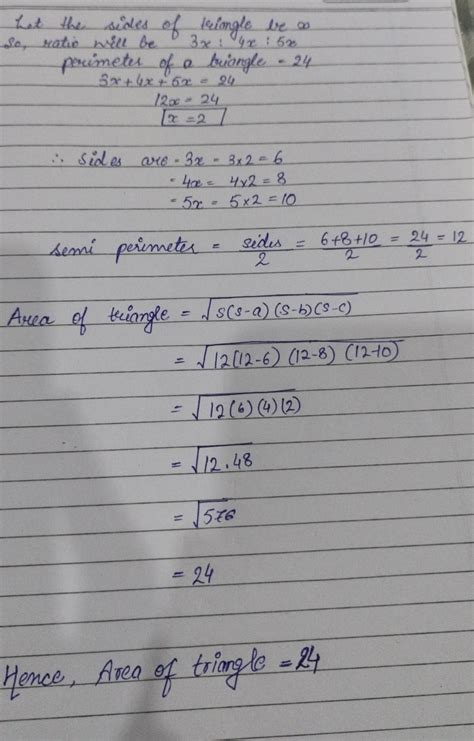 Let the sides of triangle be x
So, ratio will be 3x : 4x : 5x
perimeter of a triangle = 24
3x+4x+5x = 24
12x = 24
x = 2
∴ Sides are - 3x - 3×2 = 6
- 4x = 4×2 = 8
- 5x = 5×2 = 10
Semi perimeter = sides/2 = 6+8+10/2 = 24/2 = 12
Area of triangle = √s(s-a)(s-b)(s-c)
= √12(12-6)(12-8)(12-10)
= √12(6)(4)(2)
= √12.48
= √576
= 24
Hence, Area of triangle = 24